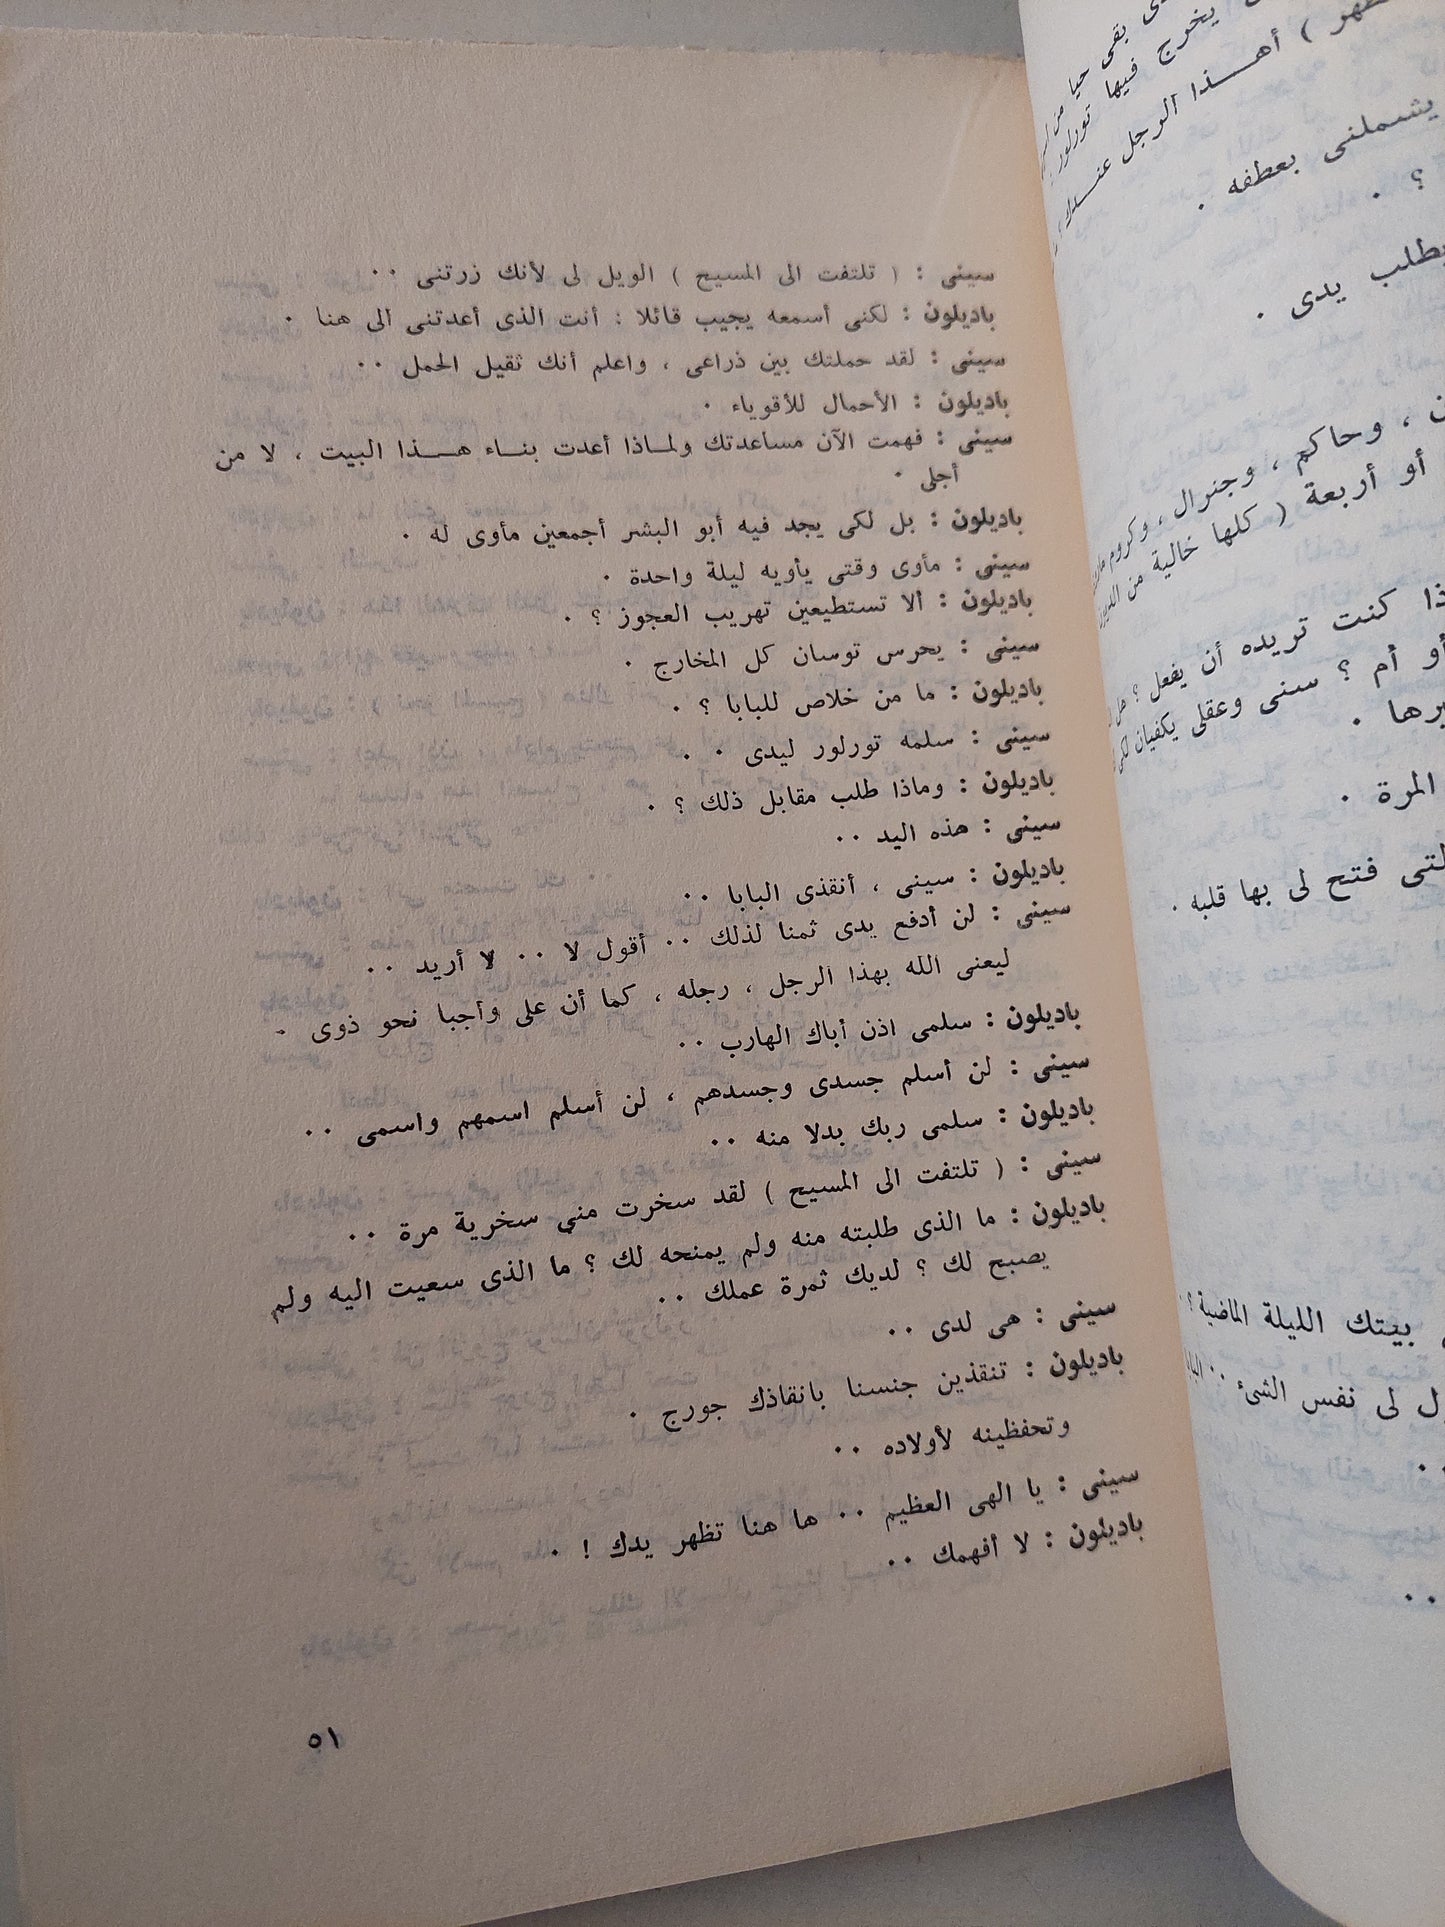 سينى : ( تلتفت الى المسيح ) الويل لى لأنك زرتنى ٠٠
باديلون : لكنى أسمعه يجيب قائلا : أنت الذى أعدتنى الى هنا ٠
سينى : لقد حملتك بين ذراعى ، واعلم أنك ثقيل الحمل ٠٠
باديلون : الأحمال للأقوياء ٠
سينى : فهمت الآن مساعدتك ولماذا أعدت بناء هذا البيت ، لا من
أجلى ٠
باديلون : بل لكى يجد فيه أبو البشر أجمعين مأوى له ٠
سينى : مأوى وقتى يأويه ليلة واحدة ٠
باديلون : ألا تستطيعين تهريب العجوز ؟ ٠
سينى : يحرس توسان كل المخارج ٠
باديلون : ما من خلاص للبابا ؟ ٠
سينى : سلمه تورلور ليدى ٠ ٠
باديلون : وماذا طلب مقابل ذلك ؟ ٠
سينى : هذه اليد ٠٠
باديلون : سينى ، أنقذى البابا ٠٠
سينى : لن أدفع يدى ثمنا لذلك ٠٠ أقول لا ٠٠ لا أريد ٠٠
ليعنى الله بهذا الرجل ، رجله ، كما أن على وأجبا نحو ذوى ٠
باديلون : سلمى اذن أباك الهارب ٠٠
سينى : لن أسلم جسدى وجسدهم ، لن أسلم اسمهم واسمى ٠٠
باديلون : سلمى ربك بدلا منه ٠٠
سينى : ( تلتفت الى المسيح ) لقد سخرت مني سخرية مرة ٠٠
باديلون : ما الذى طلبته منه ولم يمنحه لك ؟ ما الذى سعيت اليه ولم
يصبح لك ؟ لديك ثمرة عملك ٠٠
سينى : هى لدى ٠٠
باديلون : تنقذين جنسنا بانقاذك جورج ٠
وتحفظينه لأولاده ٠٠
سينى : يا الهى العظيم ٠٠ ها هنا تظهر يدك ! ٠
باديلون : لا أفهمك ٠٠
٥١
بقى حيا من
يخرج فيها تورلور
) أهذا الرجل عندك
يشملنى بعطفه ٠
؟ ٠
يطلب يدى ٠
، وحاكم ، وجنرال ، وكروم
أو أربعة ( كلها خالية من
كنت تريده أن يفعل ؟ هل
أو أم ؟ سنى وعقلى يكفيان لكى
المرة ٠
فتح لى بها قلبه ٠
بيتك الليلة الماضية ؟
لى نفس الشئ ٠٠
٠٠